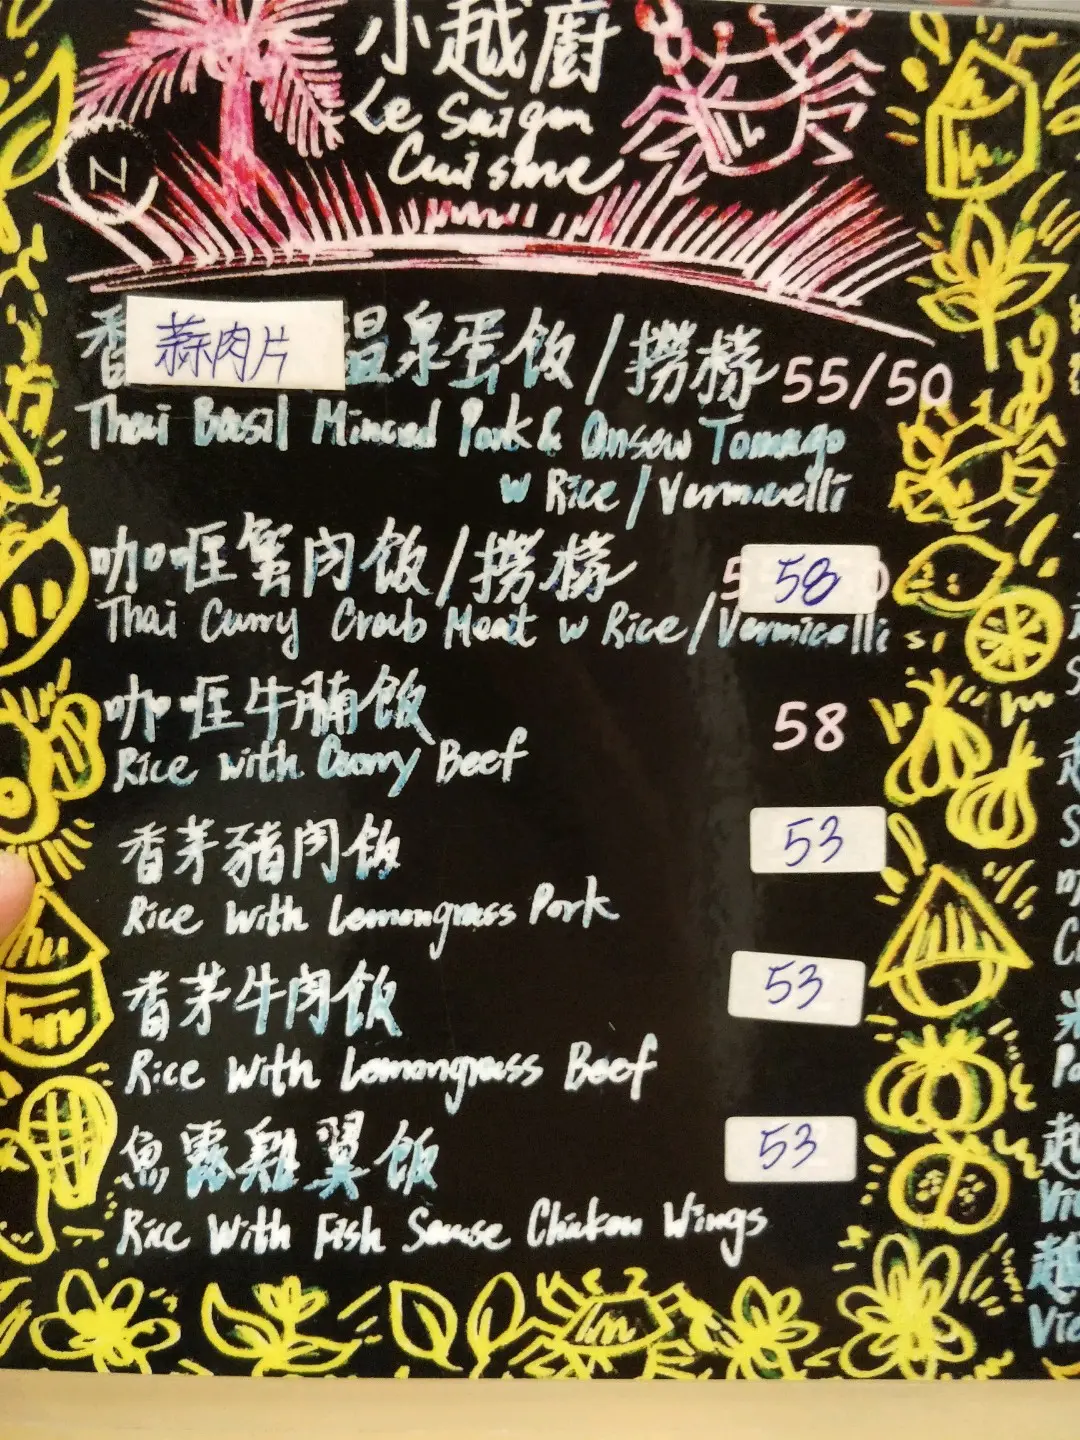 小越廚
Le Saigon
Cuisine
N
香 蒜肉片 温泉蛋飯/撈檬 55/50
Thai Basil Minced Pork & Onsew Tomago
w Rice/Vermicelli
咖喱蟹肉飯/撈檬 58
Thai Curry Crab Meat w Rice/Vermicelli
咖喱牛腩飯 58
Rice with Curry Beef
香茅豬肉飯 53
Rice with Lemongrass Pork
香茅牛肉飯 53
Rice with Lemongrass Beef
魚露雞翼飯 53
Rice with Fish Sause Chicken Wings